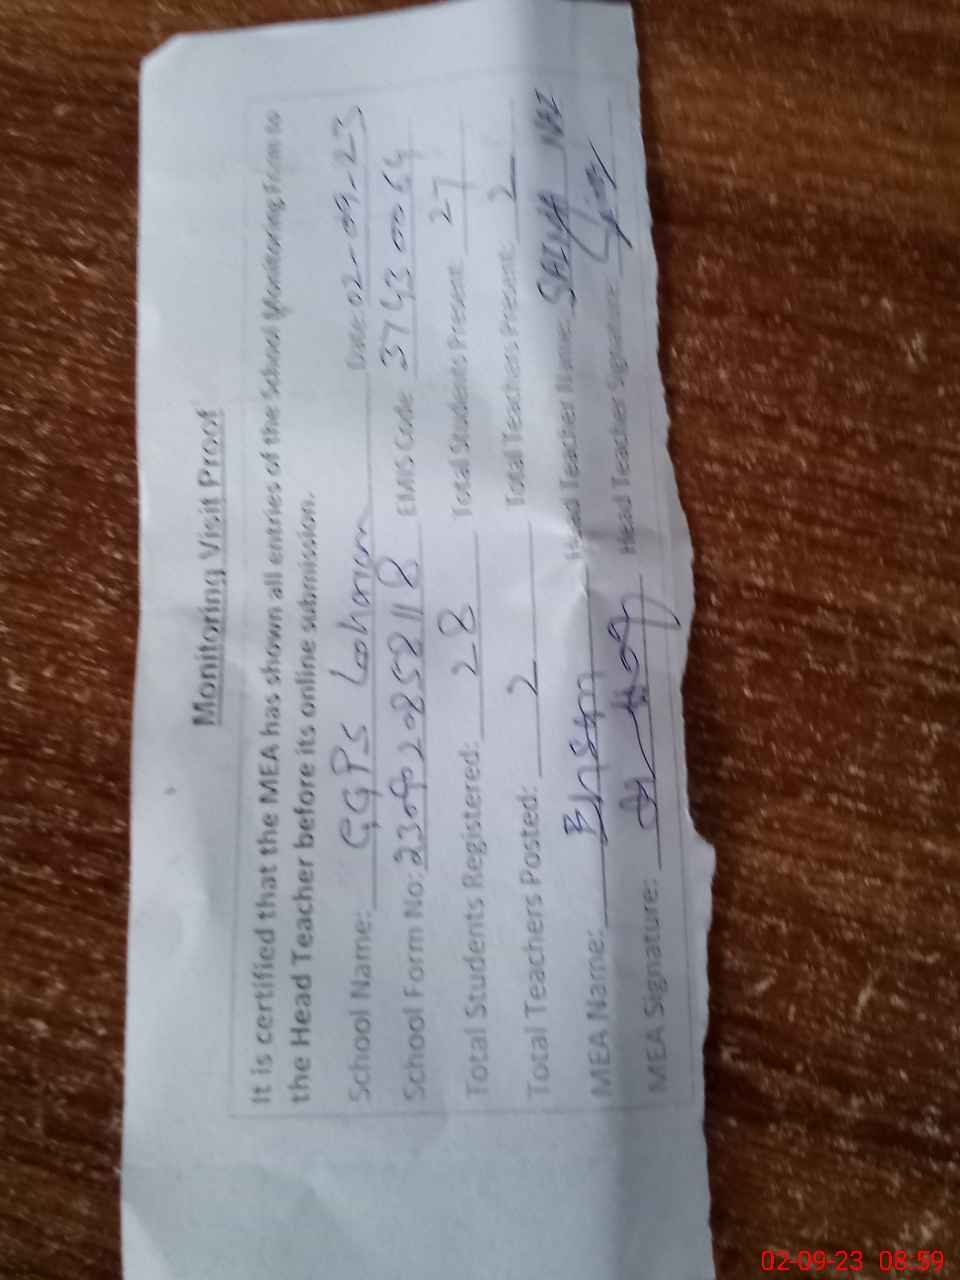 Monitoring Visit Proof
It is certified that the MEA has shown all entries of the School Monitoring Form to
the Head Teacher before its online submission.
School Name: GGPS Loharan Date: 02-09-23
School Form No: EMIS Code: 37430064
Total Students Registered: 28 Total Students Present: 27
Total Teachers Posted: 2 Total Teachers Present: 2
MEA Name: Head Teacher Name: SAIMA NAZ
MEA Signature: Head Teacher Signature:
02-09-23 08:59